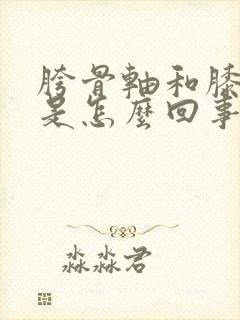 胯骨軸和膝
是怎麼回事
淼淼君